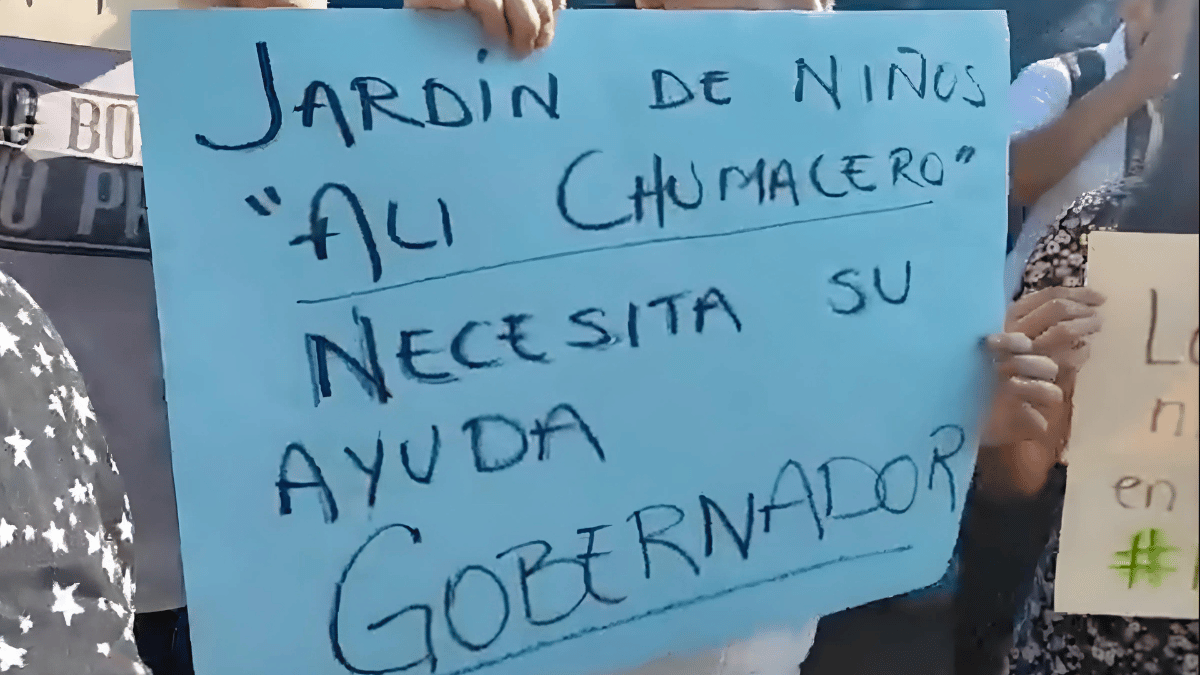 JARDÍN DE NIÑOS
"ALI CHUMACERO"
NECESITA SU
AYUDA
GOBERNADOR
BO
U PR
L
n
en
#